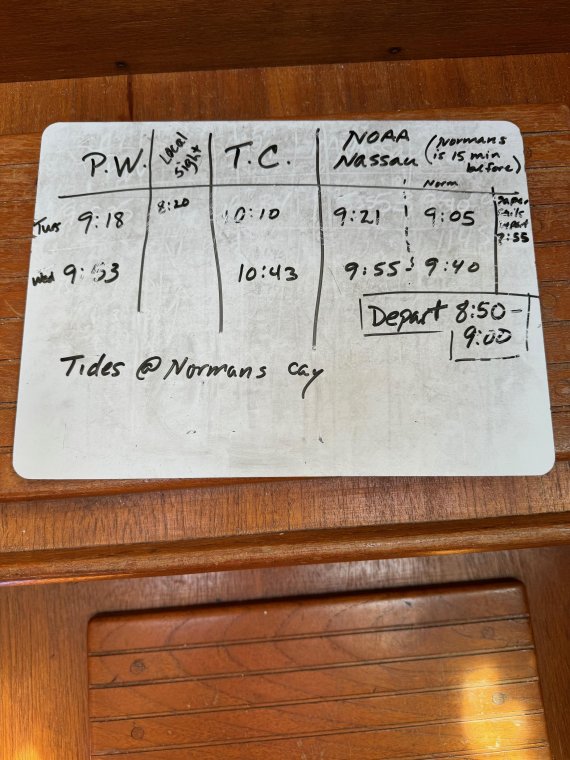 P.W.
Local sight
T.C.
NOAA Nassau
(Normans is 15 min before)
Norm
Tues 9:18 8:20 10:10 9:21 9:05
7:55
Wed 9:53 10:43 9:55 9:40
Depart 8:50-
9:00
Tides @ Normans cay